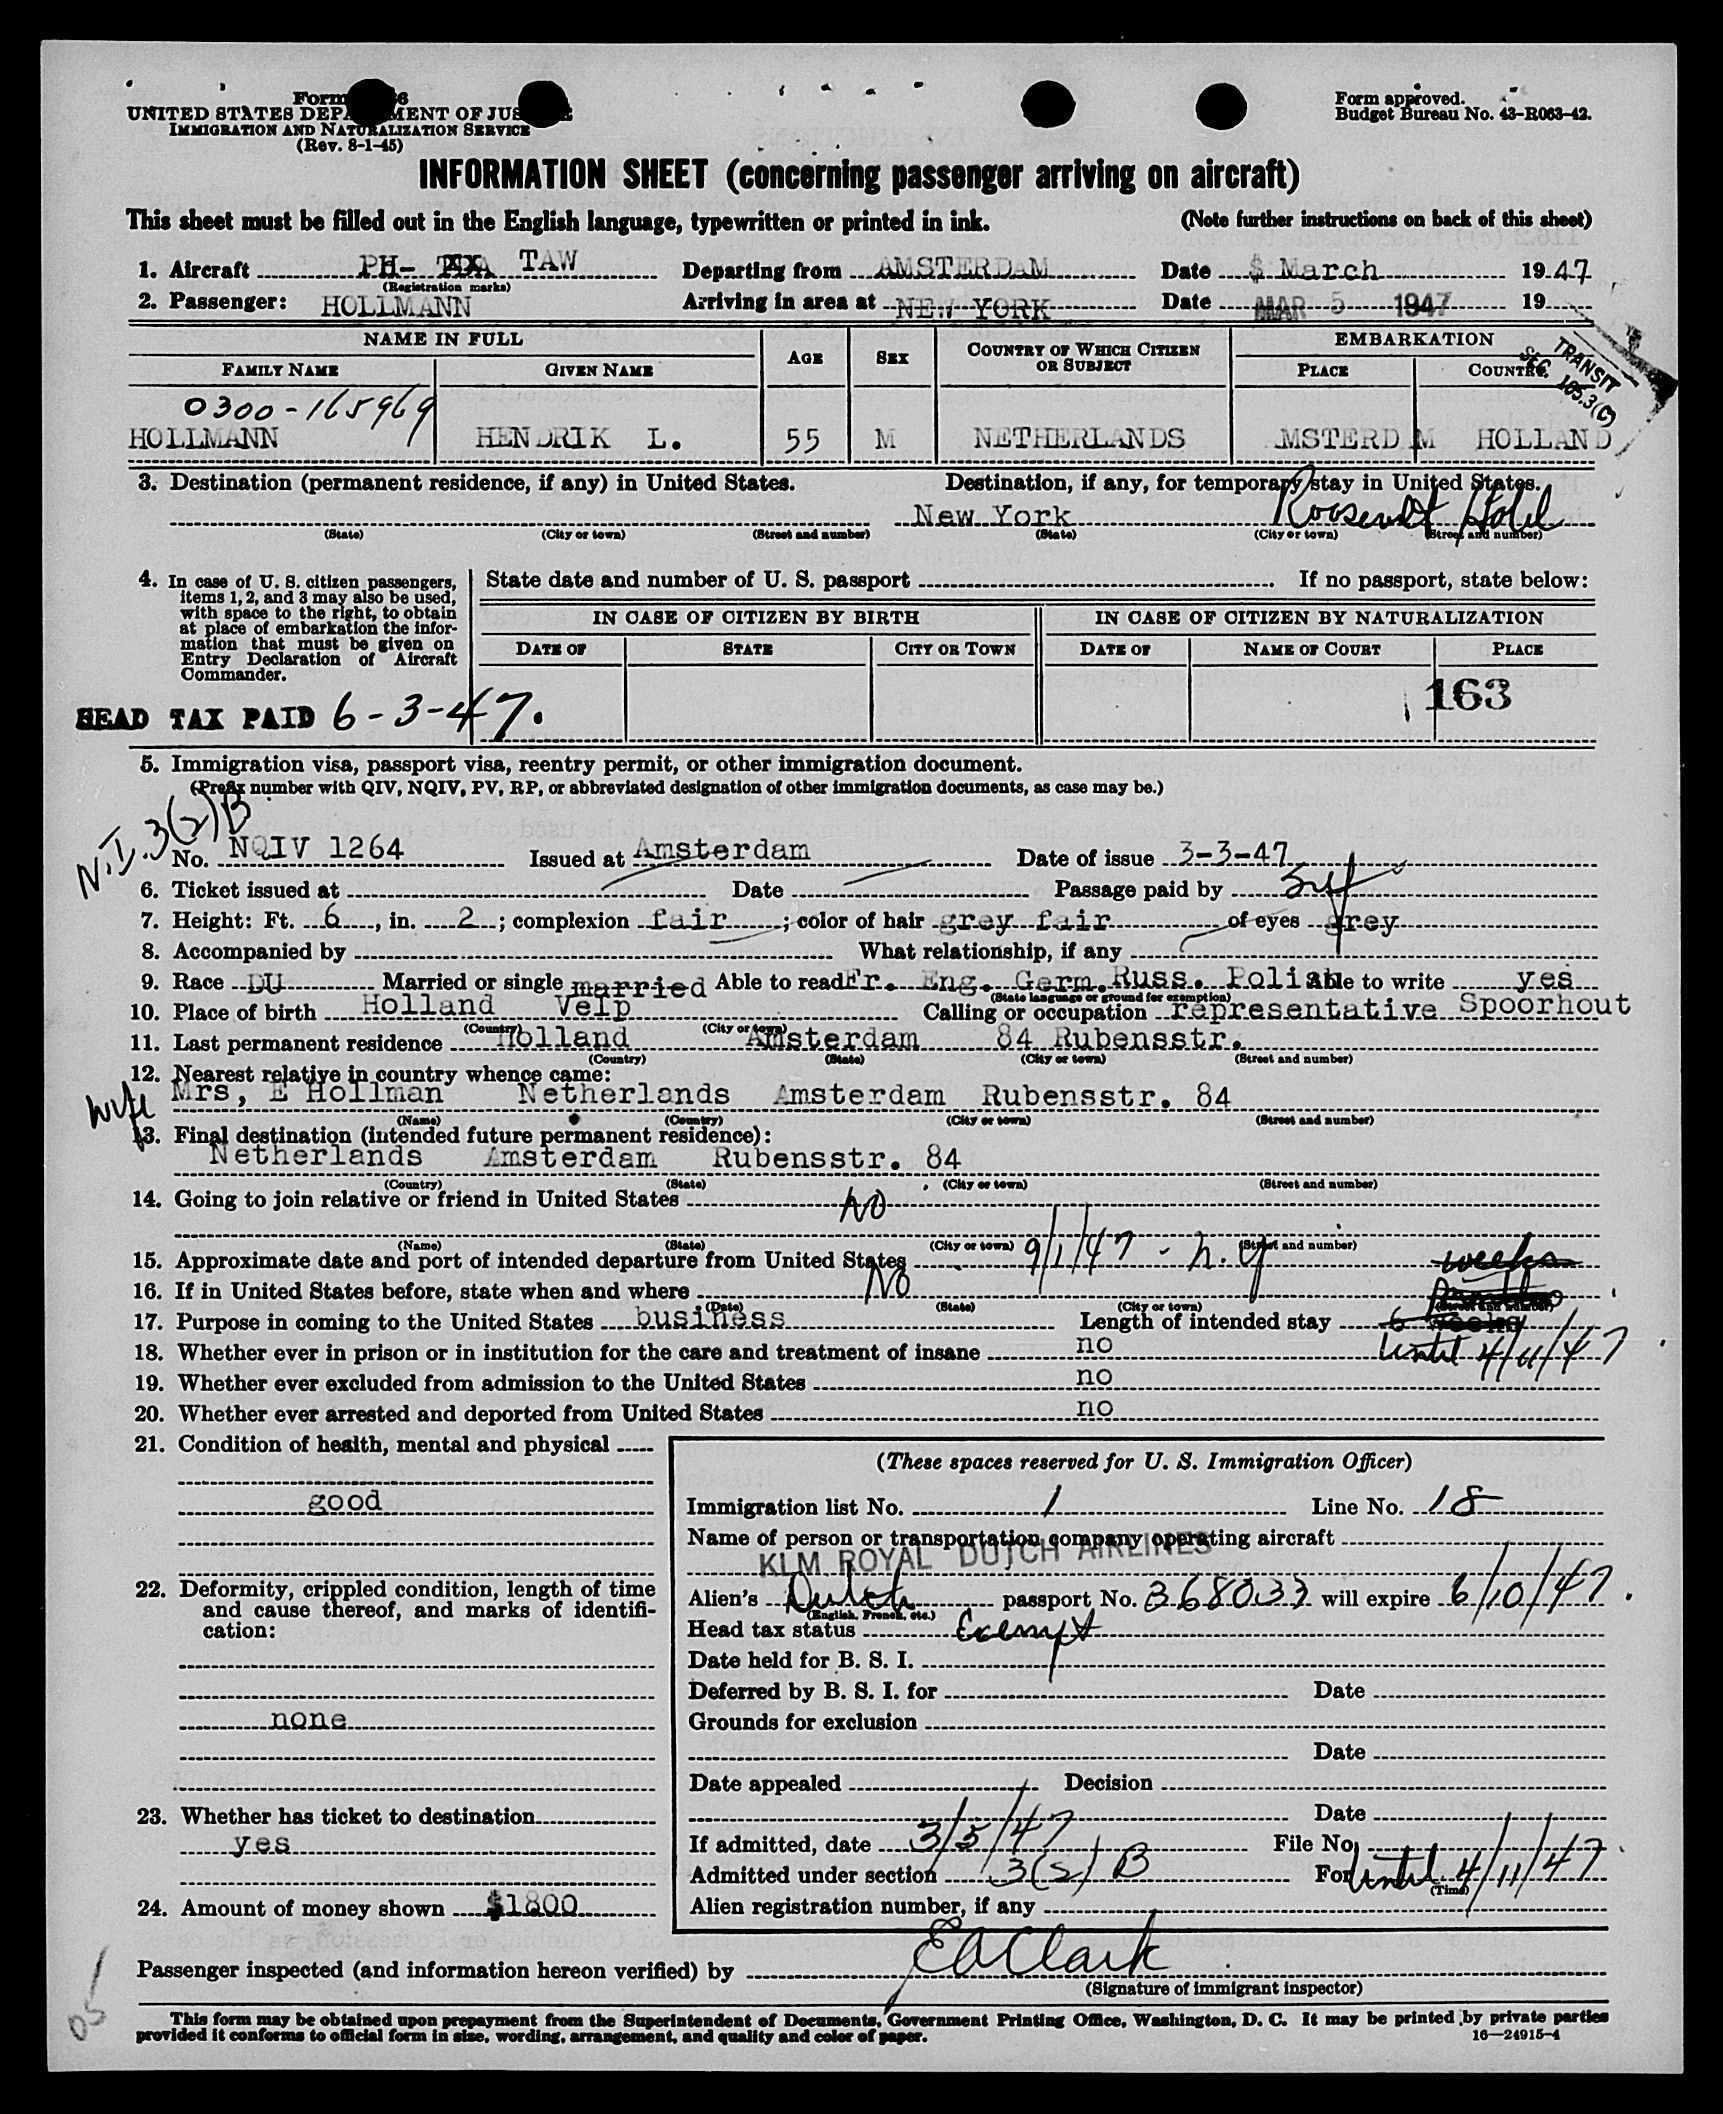 Form
UNITED STATES DEPARTMENT OF JUSTICE
IMMIGRATION AND NATURALIZATION SERVICE
(Rev. 8-1-45)
Form approved.
Budget Bureau No. 43-R063-42.
INFORMATION SHEET (concerning passenger arriving on aircraft)
This sheet must be filled out in the English language, typewritten or printed in ink. (Note further instructions on back of this sheet)
1. Aircraft PH- TAW Departing from AMSTERDAM Date March 1947
(Registration marks)
2. Passenger: HOLLMANN Arriving in area at NEW YORK Date MAR 5 1947 19
NAME IN FULL AGE SEX COUNTRY OF WHICH CITIZEN OR SUBJECT EMBARKATION
FAMILY NAME GIVEN NAME PLACE COUNTRY
TRANSIT
SEC. 165.3(C)
0300-165969
HOLLMANN HENDRIK L. 55 M NETHERLANDS MSTERD M HOLLAND
3. Destination (permanent residence, if any) in United States. Destination, if any, for temporary stay in United States.
New York Roosevelt Hotel
(State) (City or town) (Street and number) (State) (City or town) (Street and number)
4. In case of U. S. citizen passengers, items 1, 2, and 3 may also be used, with space to the right, to obtain at place of embarkation the information that must be given on Entry Declaration of Aircraft Commander.
State date and number of U. S. passport If no passport, state below:
IN CASE OF CITIZEN BY BIRTH IN CASE OF CITIZEN BY NATURALIZATION
DATE OF STATE CITY OR TOWN DATE OF NAME OF COURT PLACE
163
HEAD TAX PAID 6-3-47.
5. Immigration visa, passport visa, reentry permit, or other immigration document.
(Prefix number with QIV, NQIV, PV, RP, or abbreviated designation of other immigration documents, as case may be.)
N.I. 3(2)B
No. NQIV 1264 Issued at Amsterdam Date of issue 3-3-47
6. Ticket issued at Date Passage paid by
7. Height: Ft. 6, in. 2; complexion fair; color of hair grey fair of eyes grey
8. Accompanied by What relationship, if any
9. Race DU Married or single married Able to read Fr. Eng. Germ. Russ. Polish Able to write yes
(State language or ground for exemption)
10. Place of birth Holland Velp Calling or occupation representative Spoorhout
(Country) (City or town)
11. Last permanent residence Holland Amsterdam 84 Rubensstr.
(Country) (State) (City or town) (Street and number)
12. Nearest relative in country whence came:
wife Mrs, E Hollman Netherlands Amsterdam Rubensstr. 84
(Name) (Country) (City or town) (Street and number)
13. Final destination (intended future permanent residence):
Netherlands Amsterdam Rubensstr. 84
(Country) (State) (City or town) (Street and number)
14. Going to join relative or friend in United States No
(Name) (State) (City or town) (Street and number)
15. Approximate date and port of intended departure from United States 9/1/47 - n.y weeks
16. If in United States before, state when and where No
(Date) (State) (City or town) (Street and number)
17. Purpose in coming to the United States business Length of intended stay 6 weeks
18. Whether ever in prison or in institution for the care and treatment of insane no Until 4/11/47
19. Whether ever excluded from admission to the United States no
20. Whether ever arrested and deported from United States no
21. Condition of health, mental and physical
good
22. Deformity, crippled condition, length of time and cause thereof, and marks of identification:
none
23. Whether has ticket to destination
yes
24. Amount of money shown $1800
(These spaces reserved for U. S. Immigration Officer)
Immigration list No. 1 Line No. 18
Name of person or transportation company operating aircraft
KLM ROYAL DUTCH AIRLINES
Alien's Dutch passport No. 368033 will expire 6/10/47.
(English, French, etc.)
Head tax status Exempt
Date held for B. S. I.
Deferred by B. S. I. for Date
Grounds for exclusion
Date
Date appealed Decision
Date
If admitted, date 3/5/47 File No.
Admitted under section 3(2) B For Until 4/11/47
(Time)
Alien registration number, if any
Passenger inspected (and information hereon verified) by EA Clark
(Signature of immigrant inspector)
This form may be obtained upon prepayment from the Superintendent of Documents, Government Printing Office, Washington, D. C. It may be printed by private parties
provided it conforms to official form in size, wording, arrangement, and quality and color of paper. 16—24915-4